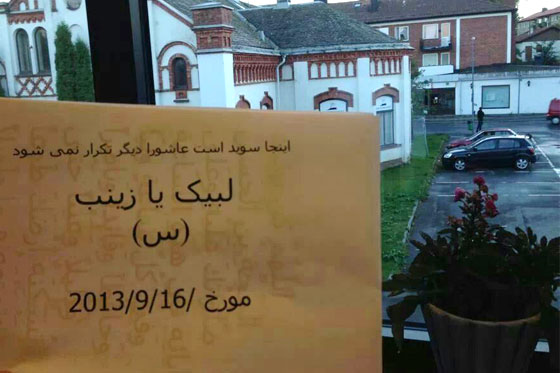 اینجا سوید است عاشورا دیگر تکرار نمی شود
لبیک یا زینب
(س)
مورخ /2013/9/16